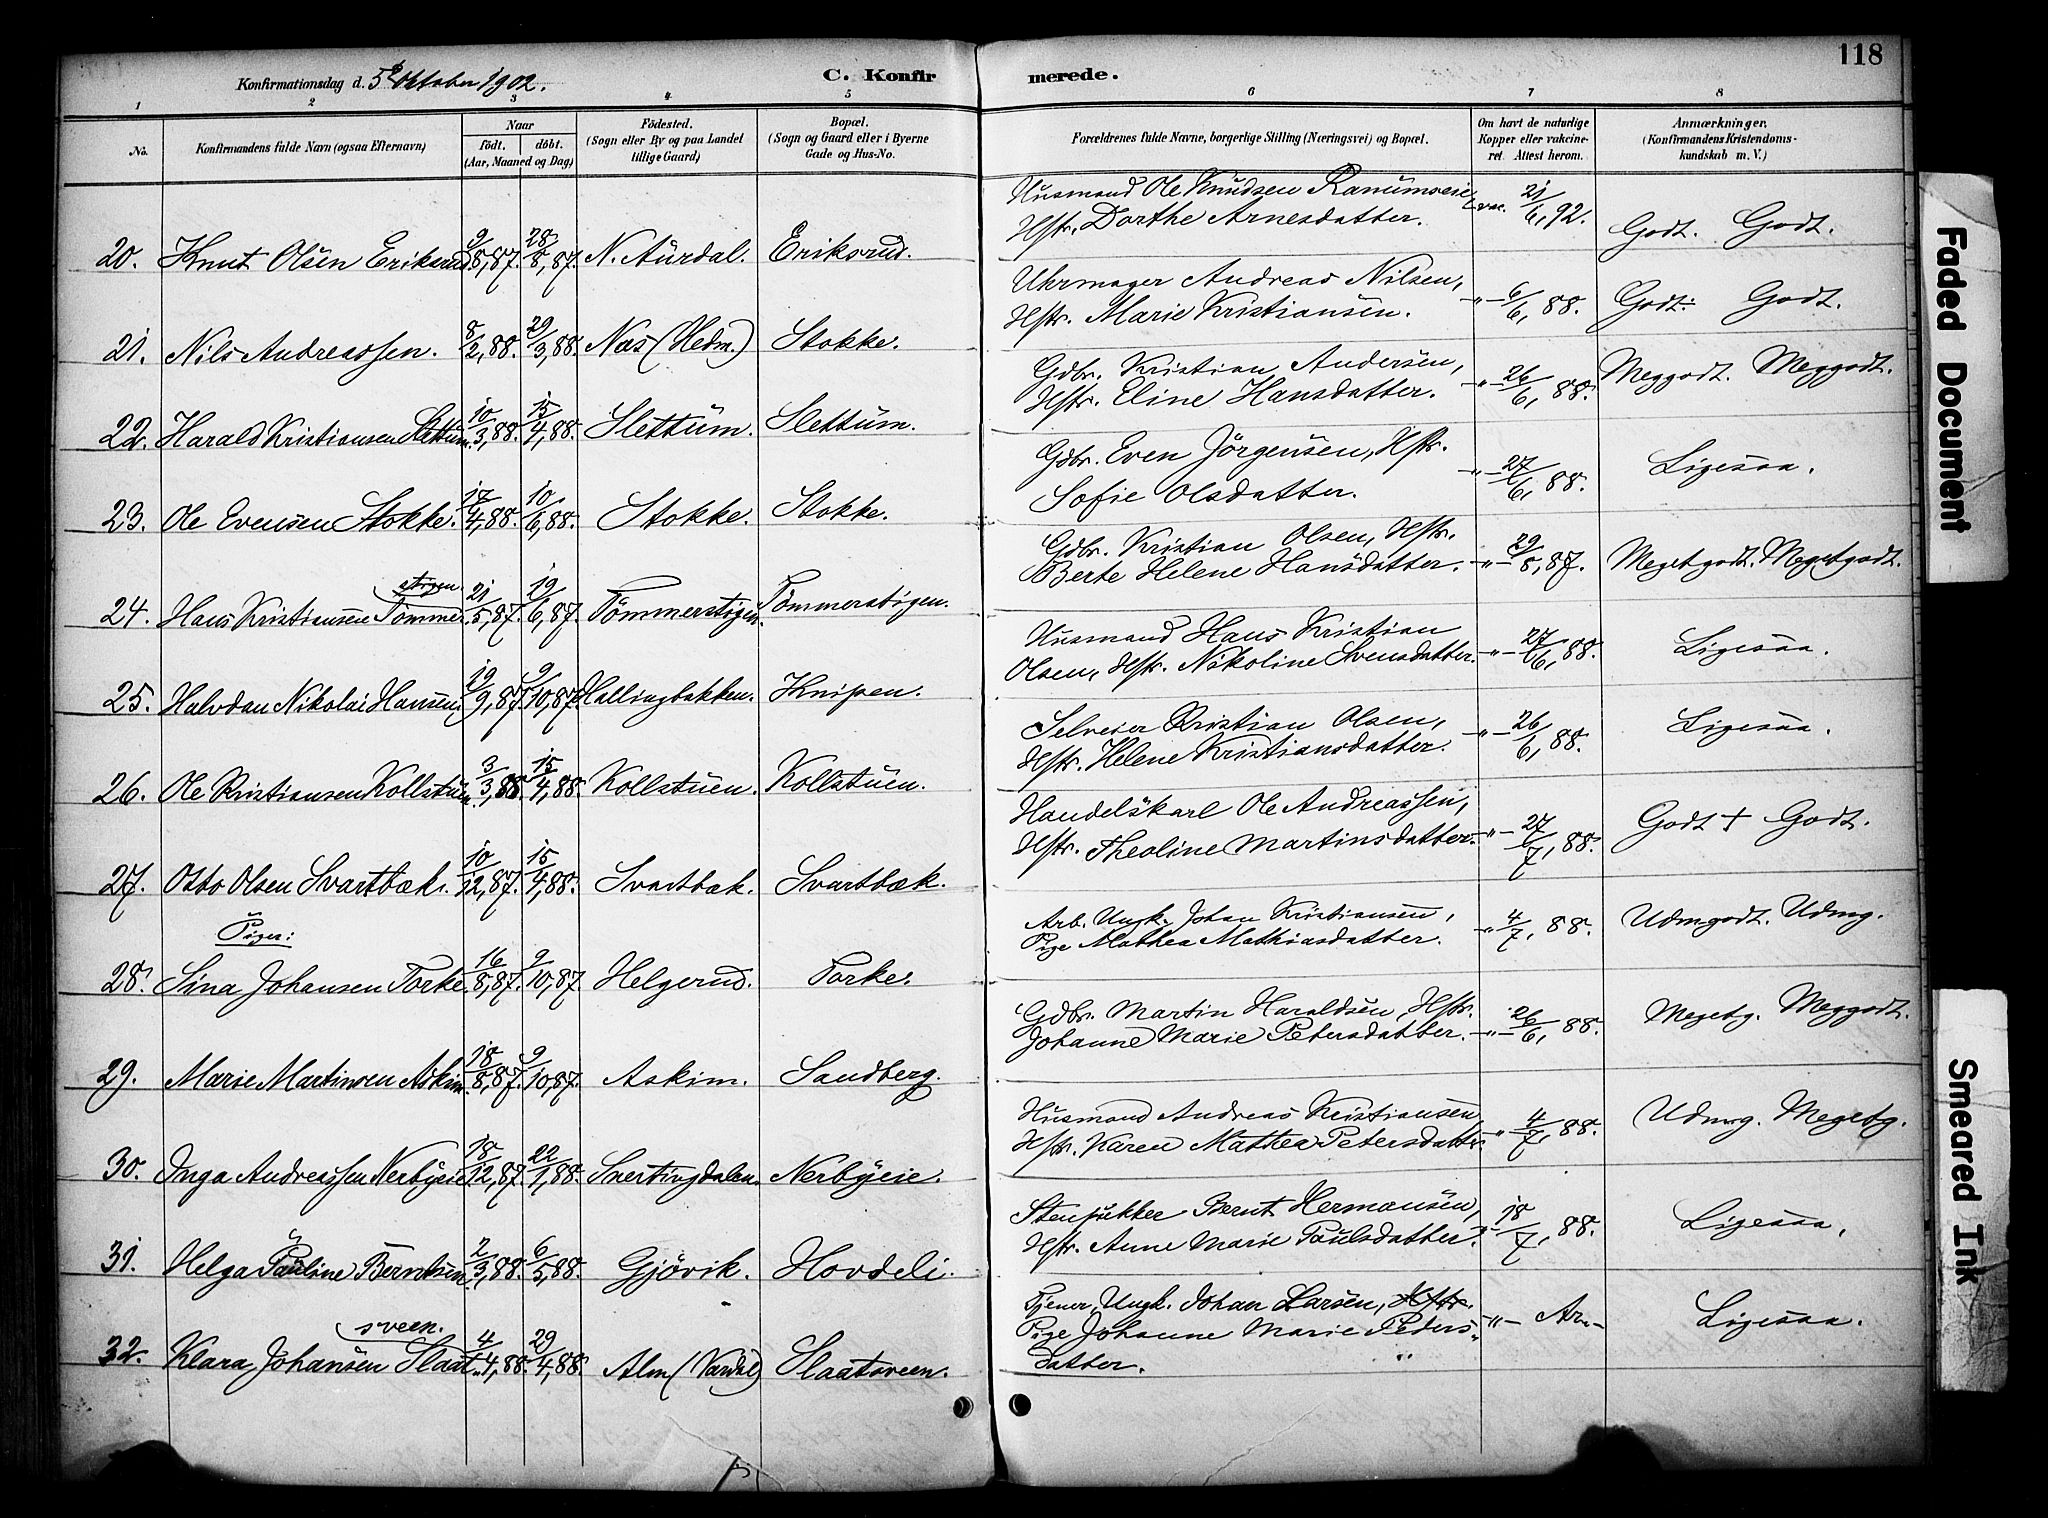 118
Konfirmationsdag d. 5te Oktober 1902.
C. Konfirmerede.
1 2 3 4 5 6 7 8
No.
Konfirmandens fulde Navn (ogsaa Efternavn)
Naar
født. døbt.
(Aar, Maaned og Dag)
Fødested.
(Sogn eller By og paa Landet
tillige Gaard)
Bopæl.
(Sogn og Gaard eller i Byerne
Gade og Hus-No.
Forældrenes fulde Navne, borgerlige Stilling (Næringsvei) og Bopæl.
Om havt de naturlige
Kopper eller vakcine-
ret. Attest herom.
Anmærkninger.
(Konfirmandens Kristendoms-
kundskab m. V.)
Husmand Ole Knudsen Ranumseie, vac. 21/6, 92.
Hstr. Dorthe Arnesdatter. Godt. Godt.
20. Knut Olsen Eriksrud 9/8, 87. 28/8, 87. N. Aurdal. Eriksrud.
Uhrmager Andreas Nilsen,
Hstr. Marie Kristiansen. -"- 6/6, 88. Godt. Godt.
21. Nils Andreassen. 8/2, 88. 29/3, 88. Næs (Hedm.) Stokke.
Gdbr. Kristian Andersen,
Hstr. Eline Hansdatter. -"- 26/6, 88. Meggodt. Meggodt.
22. Harald Kristiansen Slettum. 10/3, 88. 15/4, 88. Slettum. Slettum.
Gdbr. Even Jörgensen, Hstr.
Sofie Olsdatter. -"- 27/6, 88. Ligesaa.
23. Ole Evensen Stokke. 17/4, 88. 10/6, 88. Stokke. Stokke.
Gdbr. Kristian Olsen, Hstr.
Berte Helene Hansdatter. -"- 29/8, 87. Megetgodt. Megetgodt.
stigen
24. Hans Kristiansen Tömmer 21/5, 87. 19/6, 87. Tömmerstigen. Tömmerstigen.
Husmand Hans Kristian
Olsen, Hstr. Nikoline Svensdatter. -"- 27/6, 88. Ligesaa.
25. Halvdan Nikolai Hansen. 19/9, 87. 9/10, 87. Hallingbakken. Knipen.
Selveier Kristian Olsen,
Hstr. Helene Kristiansdatter. -"- 26/6, 88. Ligesaa.
26. Ole Kristiansen Kollstuen 3/3, 88. 15/4, 88. Kollstuen. Kollstuen.
Handelskarl Ole Andreassen,
Hstr. Theoline Martinsdatter. -"- 27/7, 88. Godt + Godt.
27. Otto Olsen Svartbæk. 10/12, 87. 15/4, 88. Svartbæk. Svartbæk.
Piger:
Arb. Ungk. Johan Kristiansen,
Pige Mathea Mathiasdatter. -"- 4/7, 88. Udmgodt. Udmg.
28. Sina Johansen Torke. 16/8, 87. 9/10, 87. Helgerud. Torke.
Gdbr. Martin Haraldsen, Hstr.
Johanne Marie Petersdatter. -"- 26/6, 88. Megetg. Meggodt.
29. Marie Martinsen Askim. 18/8, 87. 9/10, 87. Askim. Sandberg.
Husmand Andreas Kristiansen,
Hstr. Karen Mathea Petersdatter. -"- 4/7, 88. Udmg. Megetg.
30. Inga Andreassen Nerbyeie 18/12, 87. 22/1, 88. Snertingdalen. Nerbyeie.
Stenpukker Bernt Hermansen,
Hstr. Anne Marie Paulsdatter. -"- 18/7, 88. Ligesaa.
31. Helga Pauline Berntsen. 2/3, 88. 6/5, 88. Gjövik. Hovdeli.
Tjener, Ungk. Johan Larsen, Hstr.
Pige Johanne Marie Peders-
datter. -"- Ar- Ligesaa.
sveen.
32. Klara Johansen Slaat- 4/4, 88. 29/4, 88. Alm (Vardal) Slaatsveen.
Faded Document
Smeared Ink